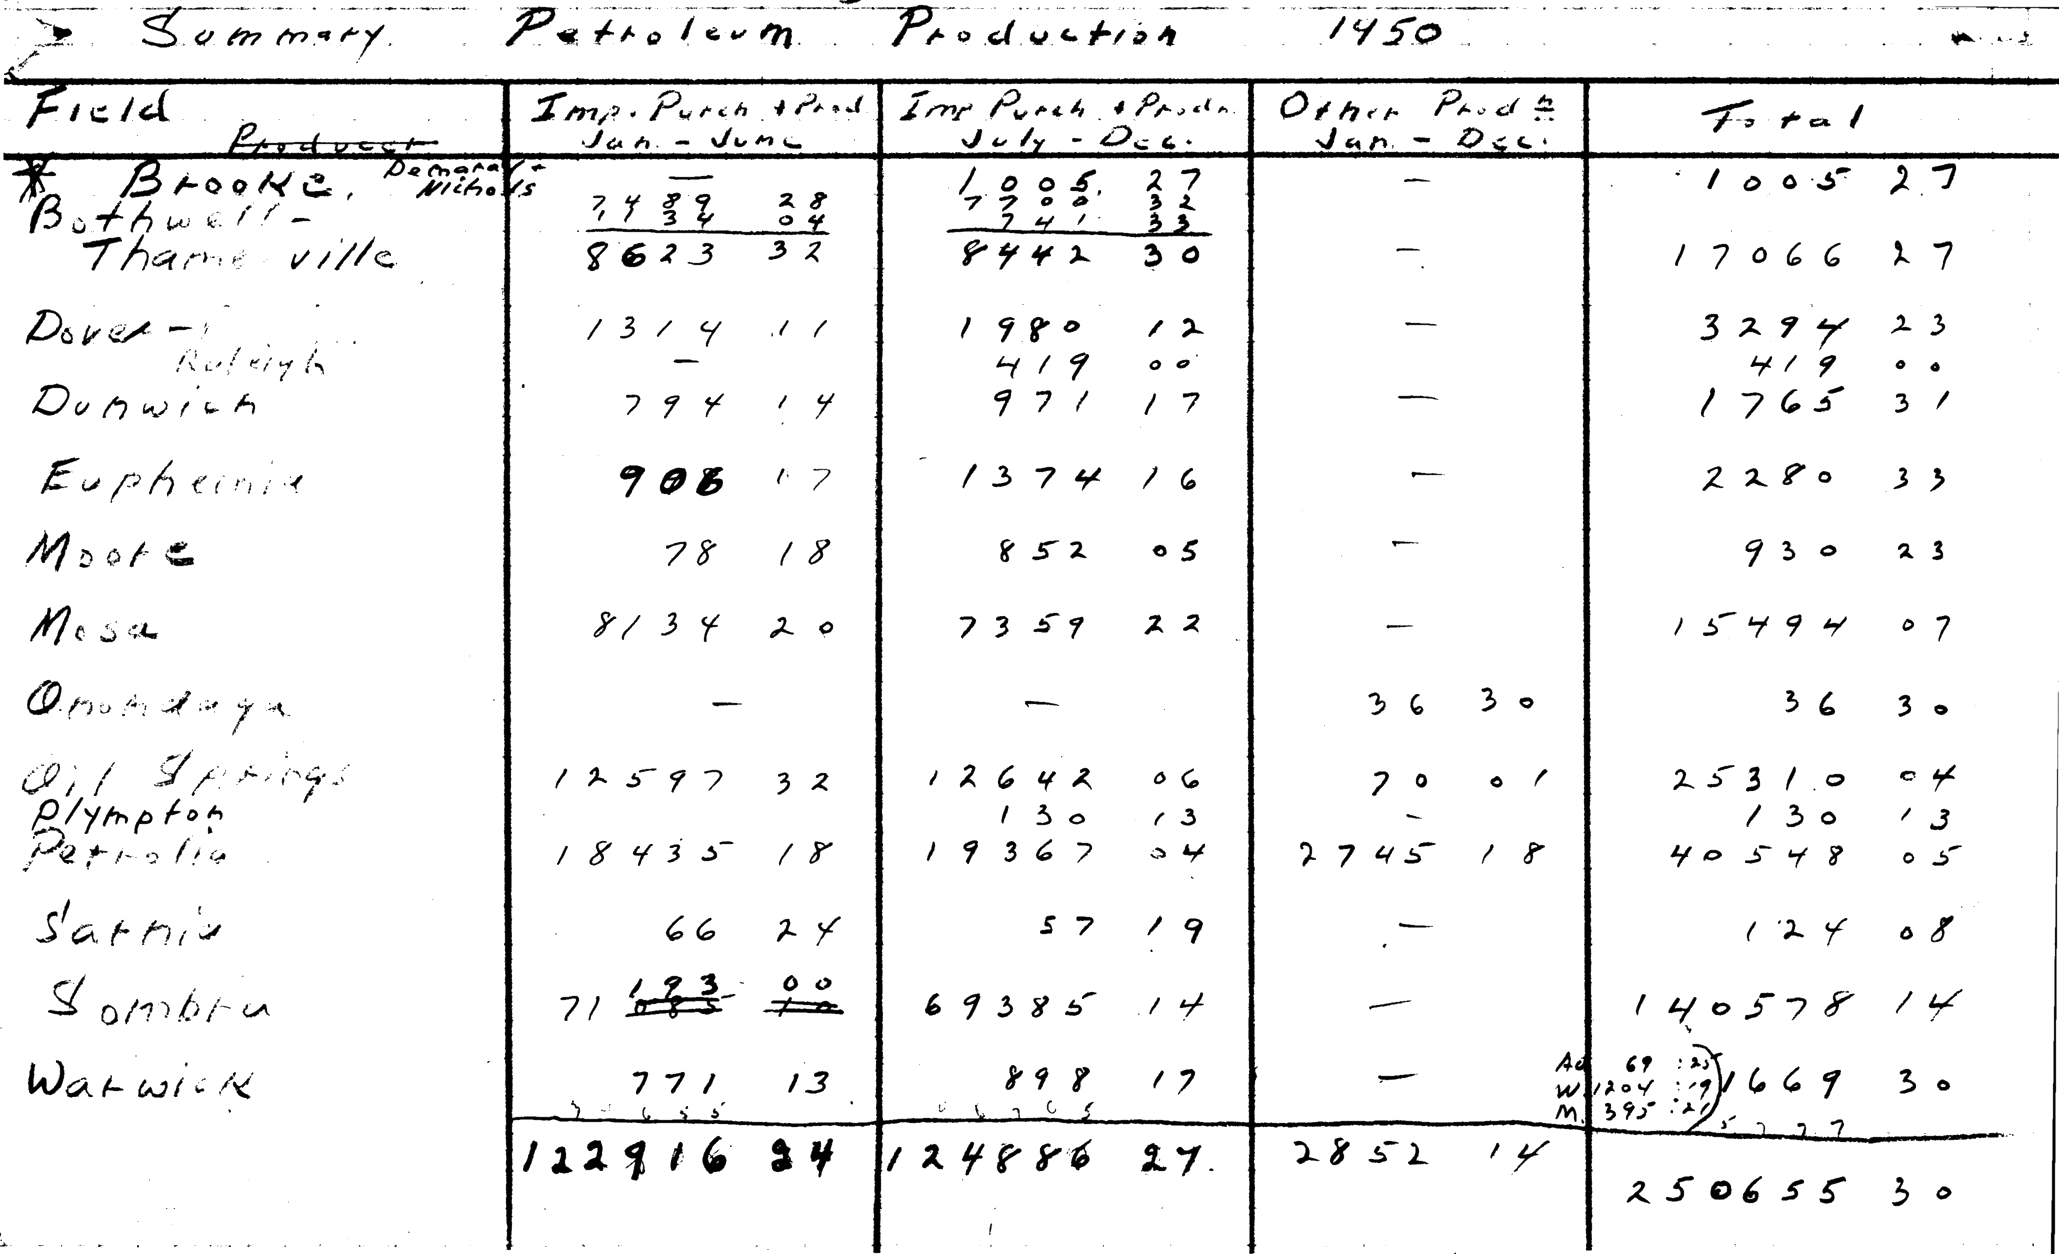 Summary Petroleum Production 1950
Field Producer Imp. Purch + Prod Jan. - June Imp Purch + Prodn. July - Dec. Other Prodn Jan. - Dec. Total
* Brooke, Demaray + Nichols — 1005 27 — 1005 27
Bothwell - 7489 28 7700 32
1134 04 741 33
Thamesville 8623 32 8442 30 — 17066 27
Dover - 1314 11 1980 12 — 3294 23
Raleigh — 419 00 419 00
Dunwich 794 14 971 17 — 1765 31
Euphemia 906 17 1374 16 — 2280 33
Moore 78 18 852 05 — 930 23
Mosa 8134 20 7359 22 — 15494 07
Onondaga — — 36 30 36 30
Oil Springs 12597 32 12642 06 70 01 25310 04
Plympton 130 13 - 130 13
Petrolia 18435 18 19367 04 2745 18 40548 05
Sarnia 66 24 57 19 — 124 08
193 00
Sombra 71 085 10 69385 14 — 140578 14
Ad 69 :25
Warwick 771 13 898 17 — W. 1204 :19 1669 30
M. 395 :21
122916 24 124886 27. 2852 14
250655 30